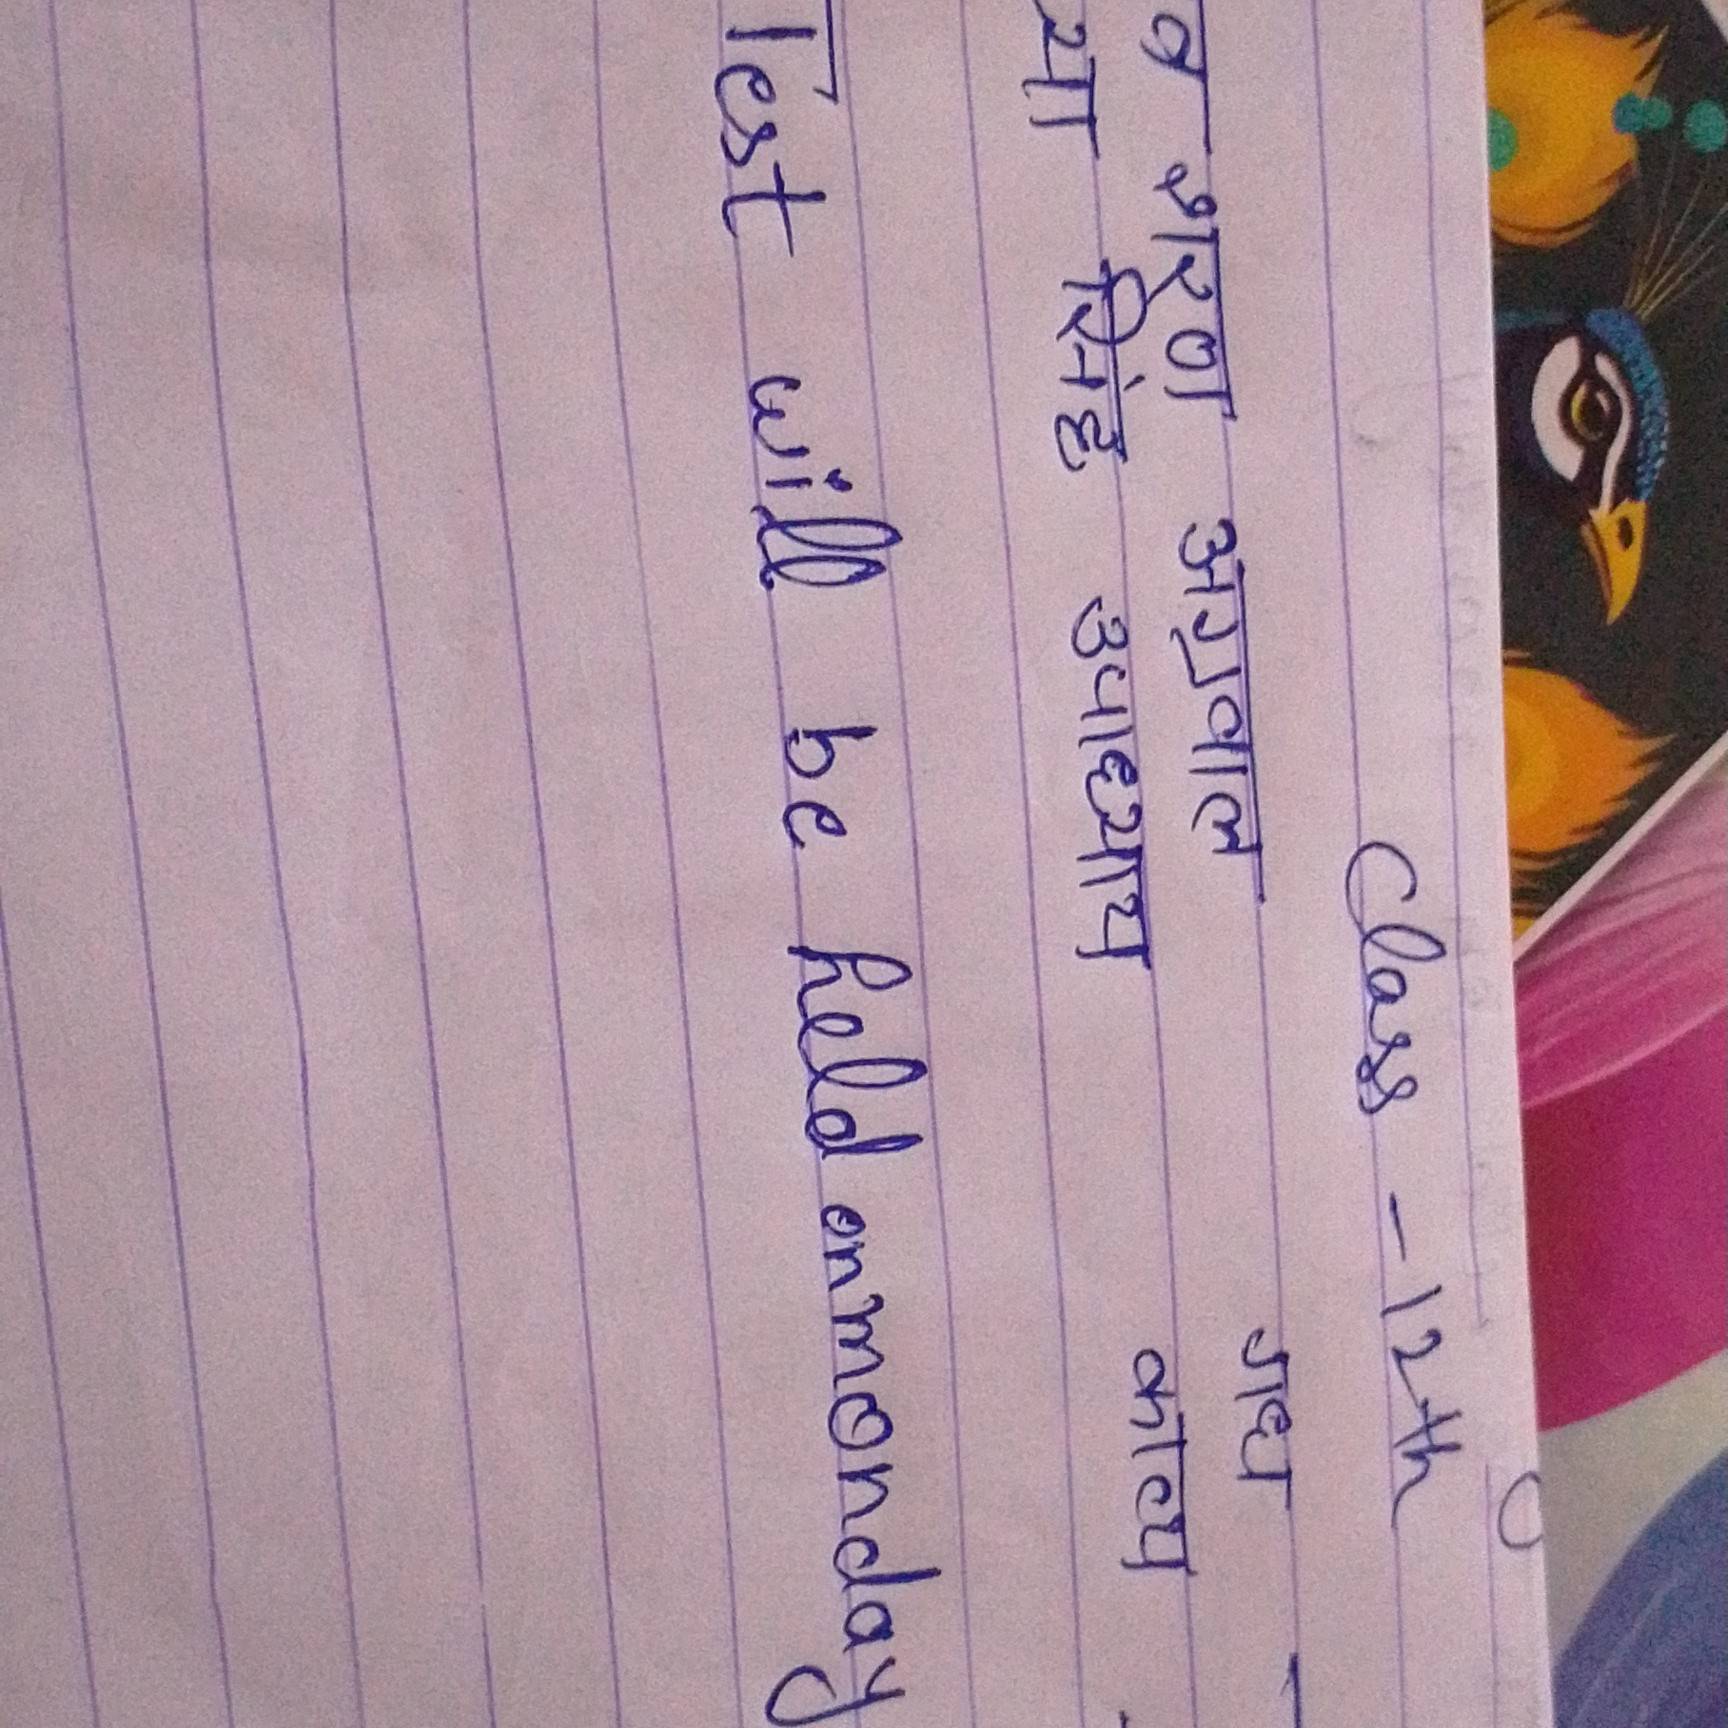 Class - 12th
व शरण अग्रवाल गद्य -
या सिंह उपाध्याय काव्य -
Test will be held on monday